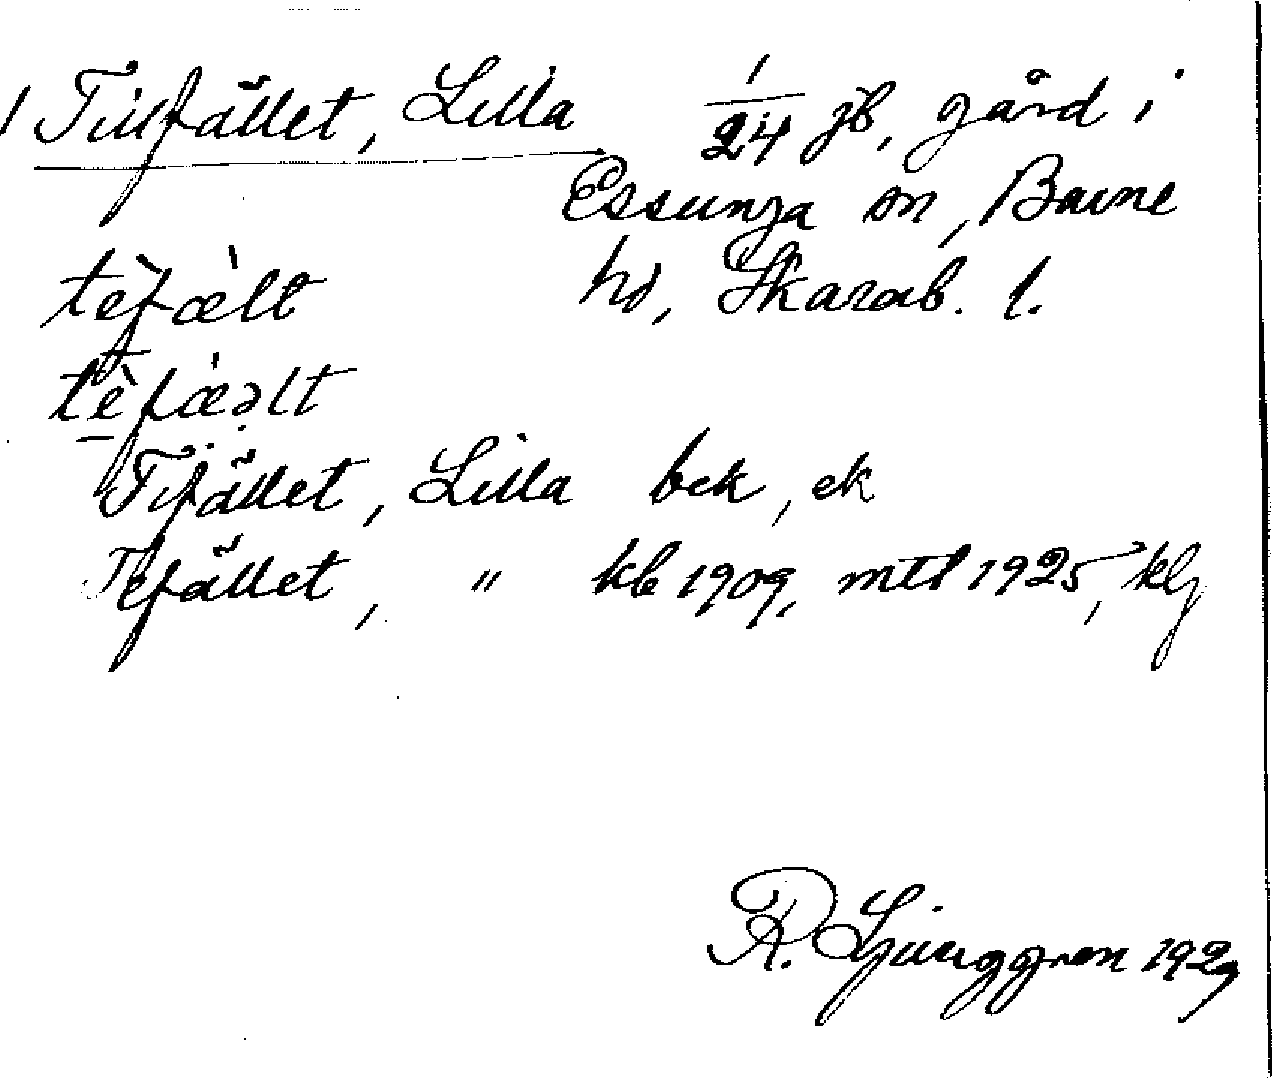 1 Tillfället, Lilla 1/24 jb, gård i
Essunga sn, Barne
hd, Skarab. l.
tèfæ̀lt
tèfæ̀əlt
Tifället, Lilla bek, ek
Tefället, " kb 1909, mtl 1925, klj
R. Ljunggren 1929